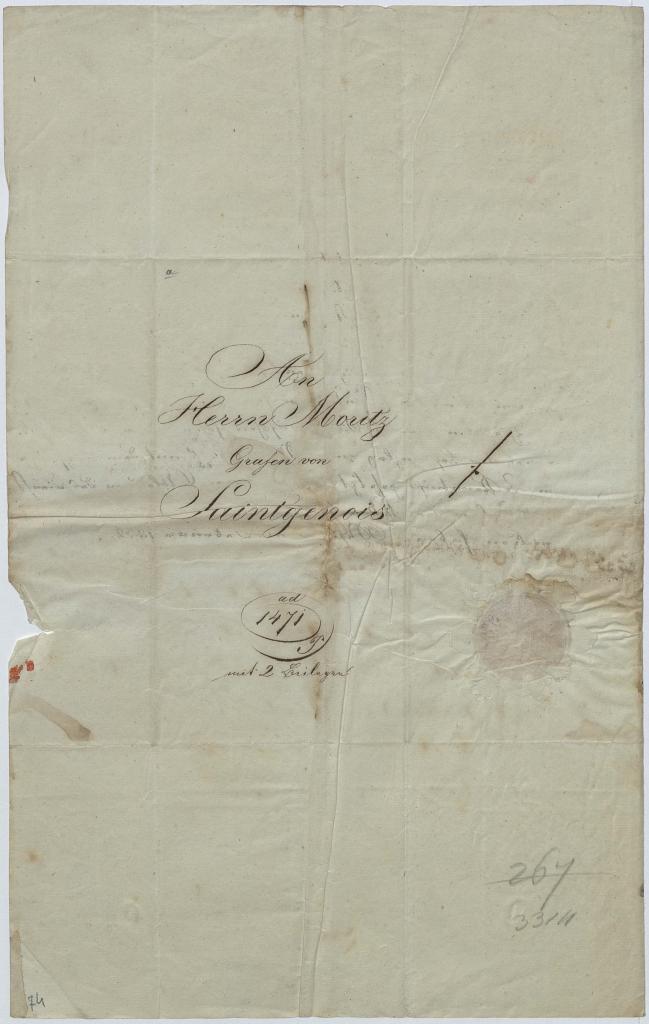 a
An
Herrn Moritz
Grafen von
Saintgenois
ad
1471
P
mit 2 Beilagen
267
3314
74